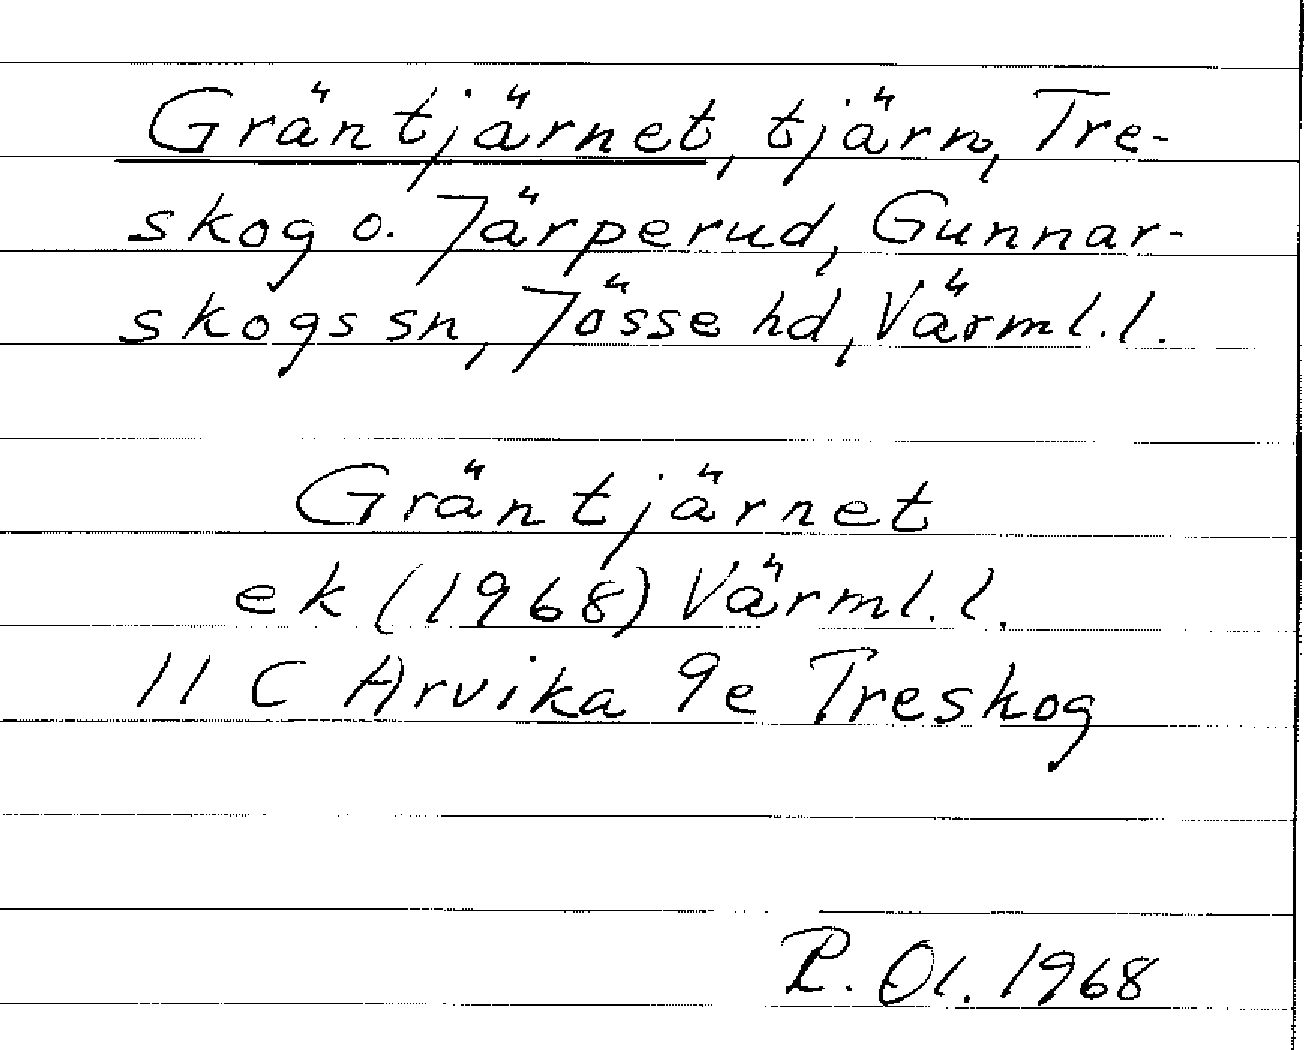 Gräntjärnet, tjärn, Tre-
skog o. Järperud, Gunnar-
skogs sn, Jösse hd, Värml. l.
Gräntjärnet
ek (1968) Värml. l.
11 C Arvika 9e Treskog
R. Ol. 1968